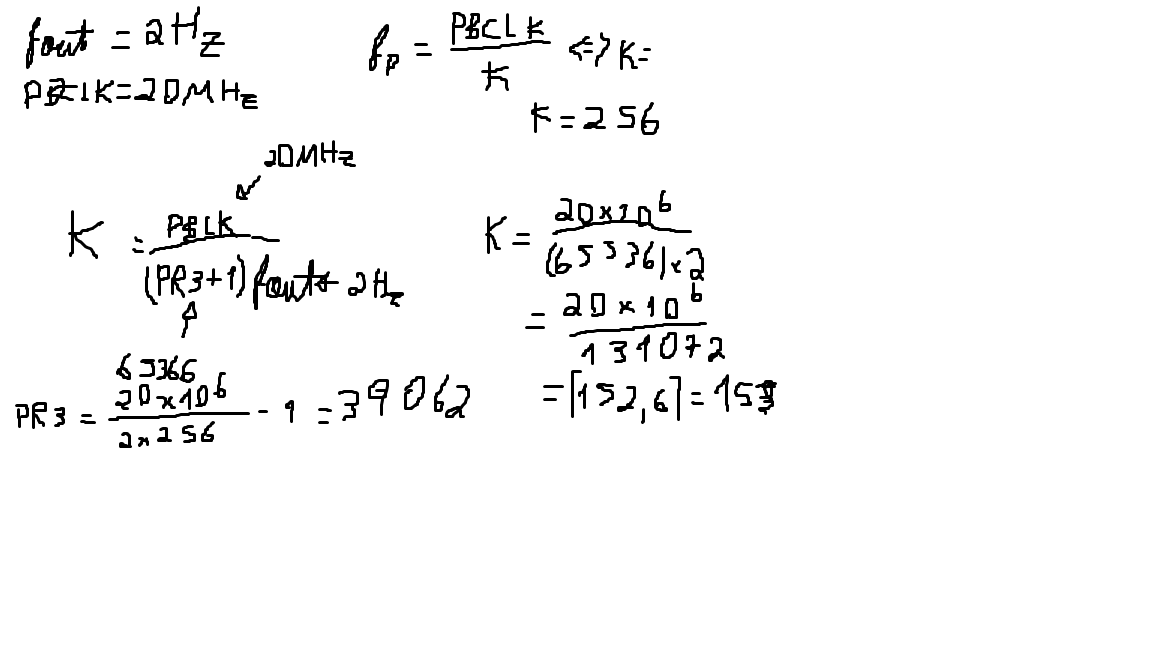 fout = 2Hz
PBCLK=20MHz
fp = PBCLK / K <=> K=
K=256
20MHz
K = PBCLK / (PR3+1)fout ← 2Hz
65366
PR3 = 20×10^6 / 2×256 - 1 = 39062
K = 20×10^6 / (65536)×2
= 20×10^6 / 131072
= ⌈152,6⌉ = 153